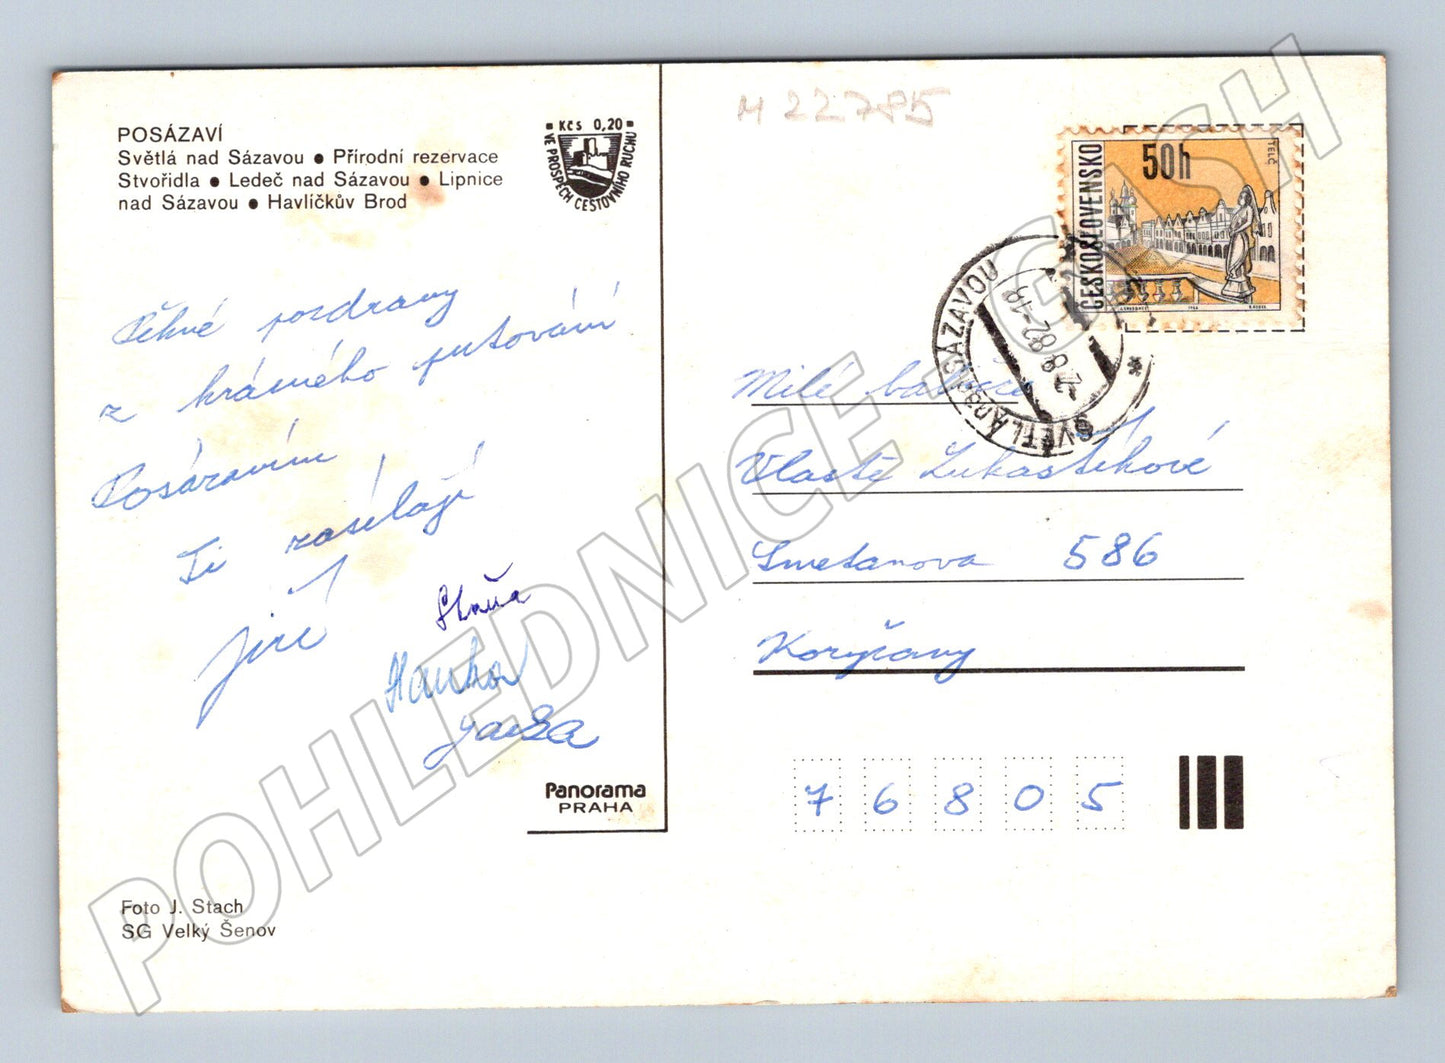 POSÁZAVÍ
Světlá nad Sázavou ● Přírodní rezervace
Stvořidla ● Ledeč nad Sázavou ● Lipnice
nad Sázavou ● Havlíčkův Brod
Kčs 0,20
VE PROSPĚCH CESTOVNÍHO RUCHU
Pěkné pozdravy
z krásného putování
Posázavím
Ti zasílají
Jiří
Hanka
Panorama
PRAHA
Foto J. Stach
SG Velký Šenov
M 22785
ČESKOSLOVENSKO
50h
TELČ
SVĚTLÁ n. SÁZAVOU
Milé
Vlastě Lukaštíkové
Smetanova 586
Koryčany
7 6 8 0 5
POHLEDNICE - GASH